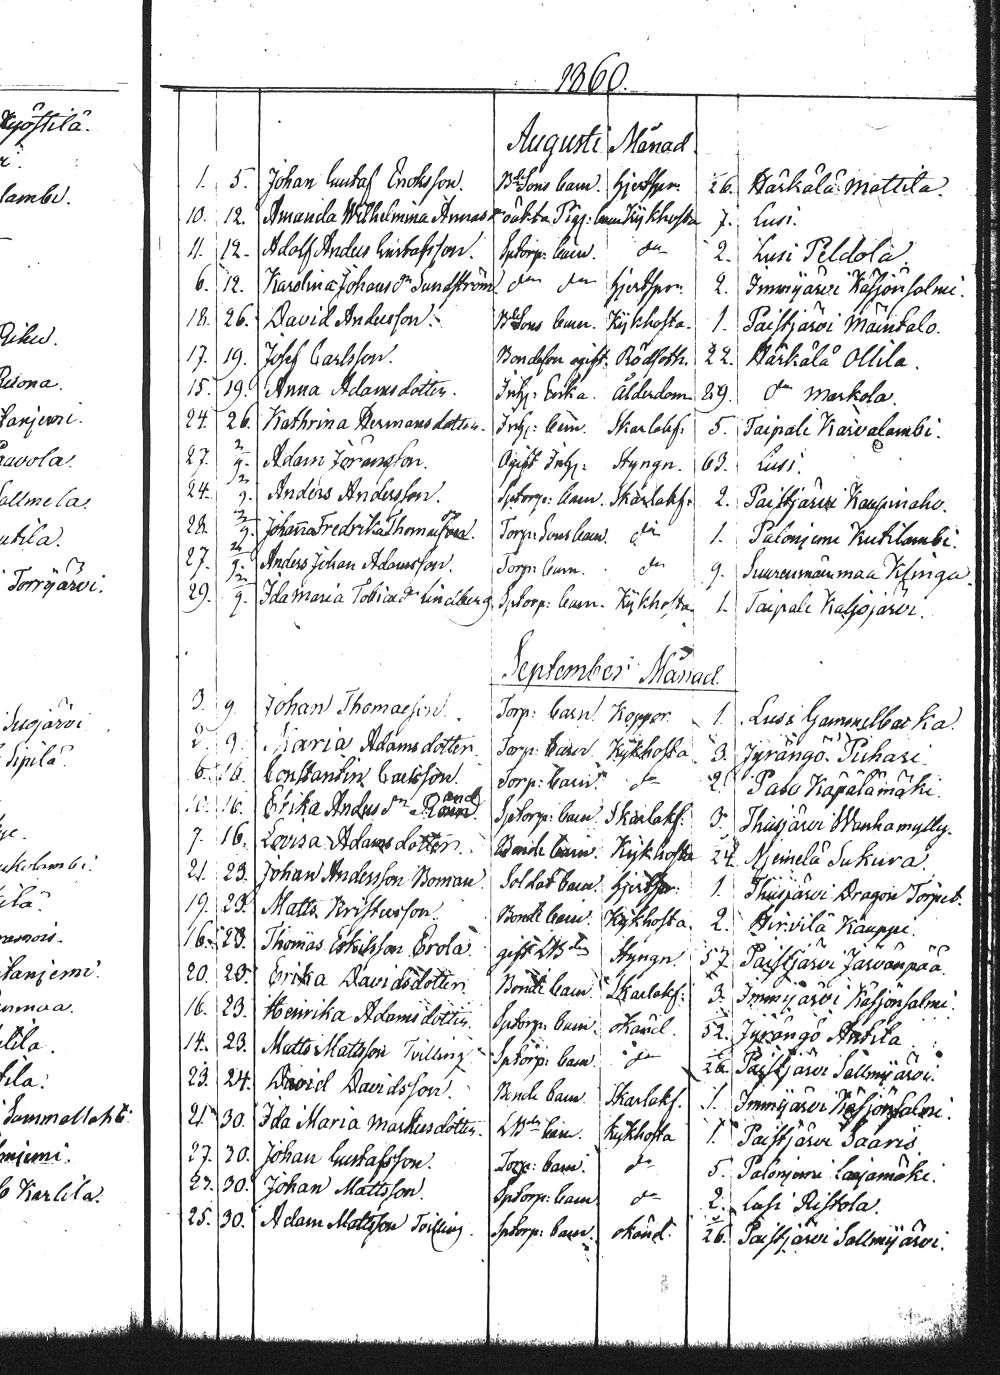 Kyöstilä.
lambi.
1860.
Augusti Månad.
1. 5. Johan Gustaf Ericksson. Bdsons barn. hjertspr. 26. Härkälä Mattila.
10. 12. Amanda Wilhelmina oäkta Pig: barn Kykhosta 7. Lusi.
11. 12. Adolf Anders Gustafsson. Sptorp: barn. do 2. Lusi Peldola.
6. 12. Karolina Johans dr Sundström do do hjertspr. 2. Immijärvi Käsjönsalmi.
18. 26. David Andersson. Bdsons barn. Kykhosta. 1. Paistjärvi Mäintalo.
17. 19. Josef Carlsson. Bondeson ogift. Rödsoth. 22. Härkälä Ollila.
15. 19. Anna Adamsdotter. Inhy: Enka. Ålderdom 89. do Markola.
24. 26. Kathrina Hermansdotter. Inhy: barn. Skarlakf: 5. Taipale Karvalambi.
27. 2/9. Adam Göransson. Ogift Inhy: Styngn. 63. Lusi.
24. 2/9. Anders Andersson. Sptorp: barn. Skarlakf: 2. Paistjärvi Kaupinaho.
28. 2/9. Johanna Fredrika Thomasdr. Torp: Sons barn. do 1. Palonjemi Kukilambi.
27. 2/9. Anders Johan Adamsson. Torp: barn. do 9. Suurenmäenmaa Klinga.
29. 2/9. Ida Maria Tobiae dr Lindberg. Sptorp: barn. Kykhosta. 1. Taipale Kaljojärvi.
Torrijärvi.
September Månad.
3. 9. Johan Thomasson. Torp: barn Koppor. 1. Lusi Gammelbacka.
2. 9. Maria Adamsdotter. Torp: barn Kykhosta 3. Jyrängö Puhari.
6. 16. Constantin Carlsson. Torp: barn do 2. Paso Käpälämäki.
16. Erika Anders dr Sptorp: barn Skarlakf. 3. Thusjärvi Wanhamylly.
7. 16. Lovisa Adamsdotter. Bonde barn. Kykhosta 24. Njemelä Sukura.
21. 23. Johan Andersson Boman. Soldat barn. hjertspr. 1. Thusjärvi Dragon Torpet.
19. 23. Matts Kristersson. Bonde barn. Kykhosta. 2. Hirvilä Kauppi.
16. 23. Thomas Eskilsson Erola. gift Styngn 57. Paistjärvi Jarvänpää.
20. 23. Erika Davidsdotter. Bonde barn. Skarlakf: 3. Immijärvi Käsjönsalmi.
16. 23. Henrika Adamsdotter. Sptorp: barn. okänd. 52. Jyrängö Anttila.
14. 23. Matts Mattsson Tvilling Sptorp: barn. do 26. Paistjärvi Sällmijärvi.
23. 24. David Davidsson. Bonde barn. Skarlakf. 1. Immijärvi Käsjönsalmi.
21. 30. Ida Maria Markusdotter. barn. Kykhosta 1. Paistjärvi Saaris
27. 30. Johan Gustafsson. Torp: barn. do 5. Palonjemi Laajamäki.
23. 30. Johan Mattsson. Sptorp: barn do 2. Lusi Ristola.
25. 30. Adam Mattsson Tvilling. Sptorp: barn. okänd. 26. Paistjärvi Sallmijärvi.